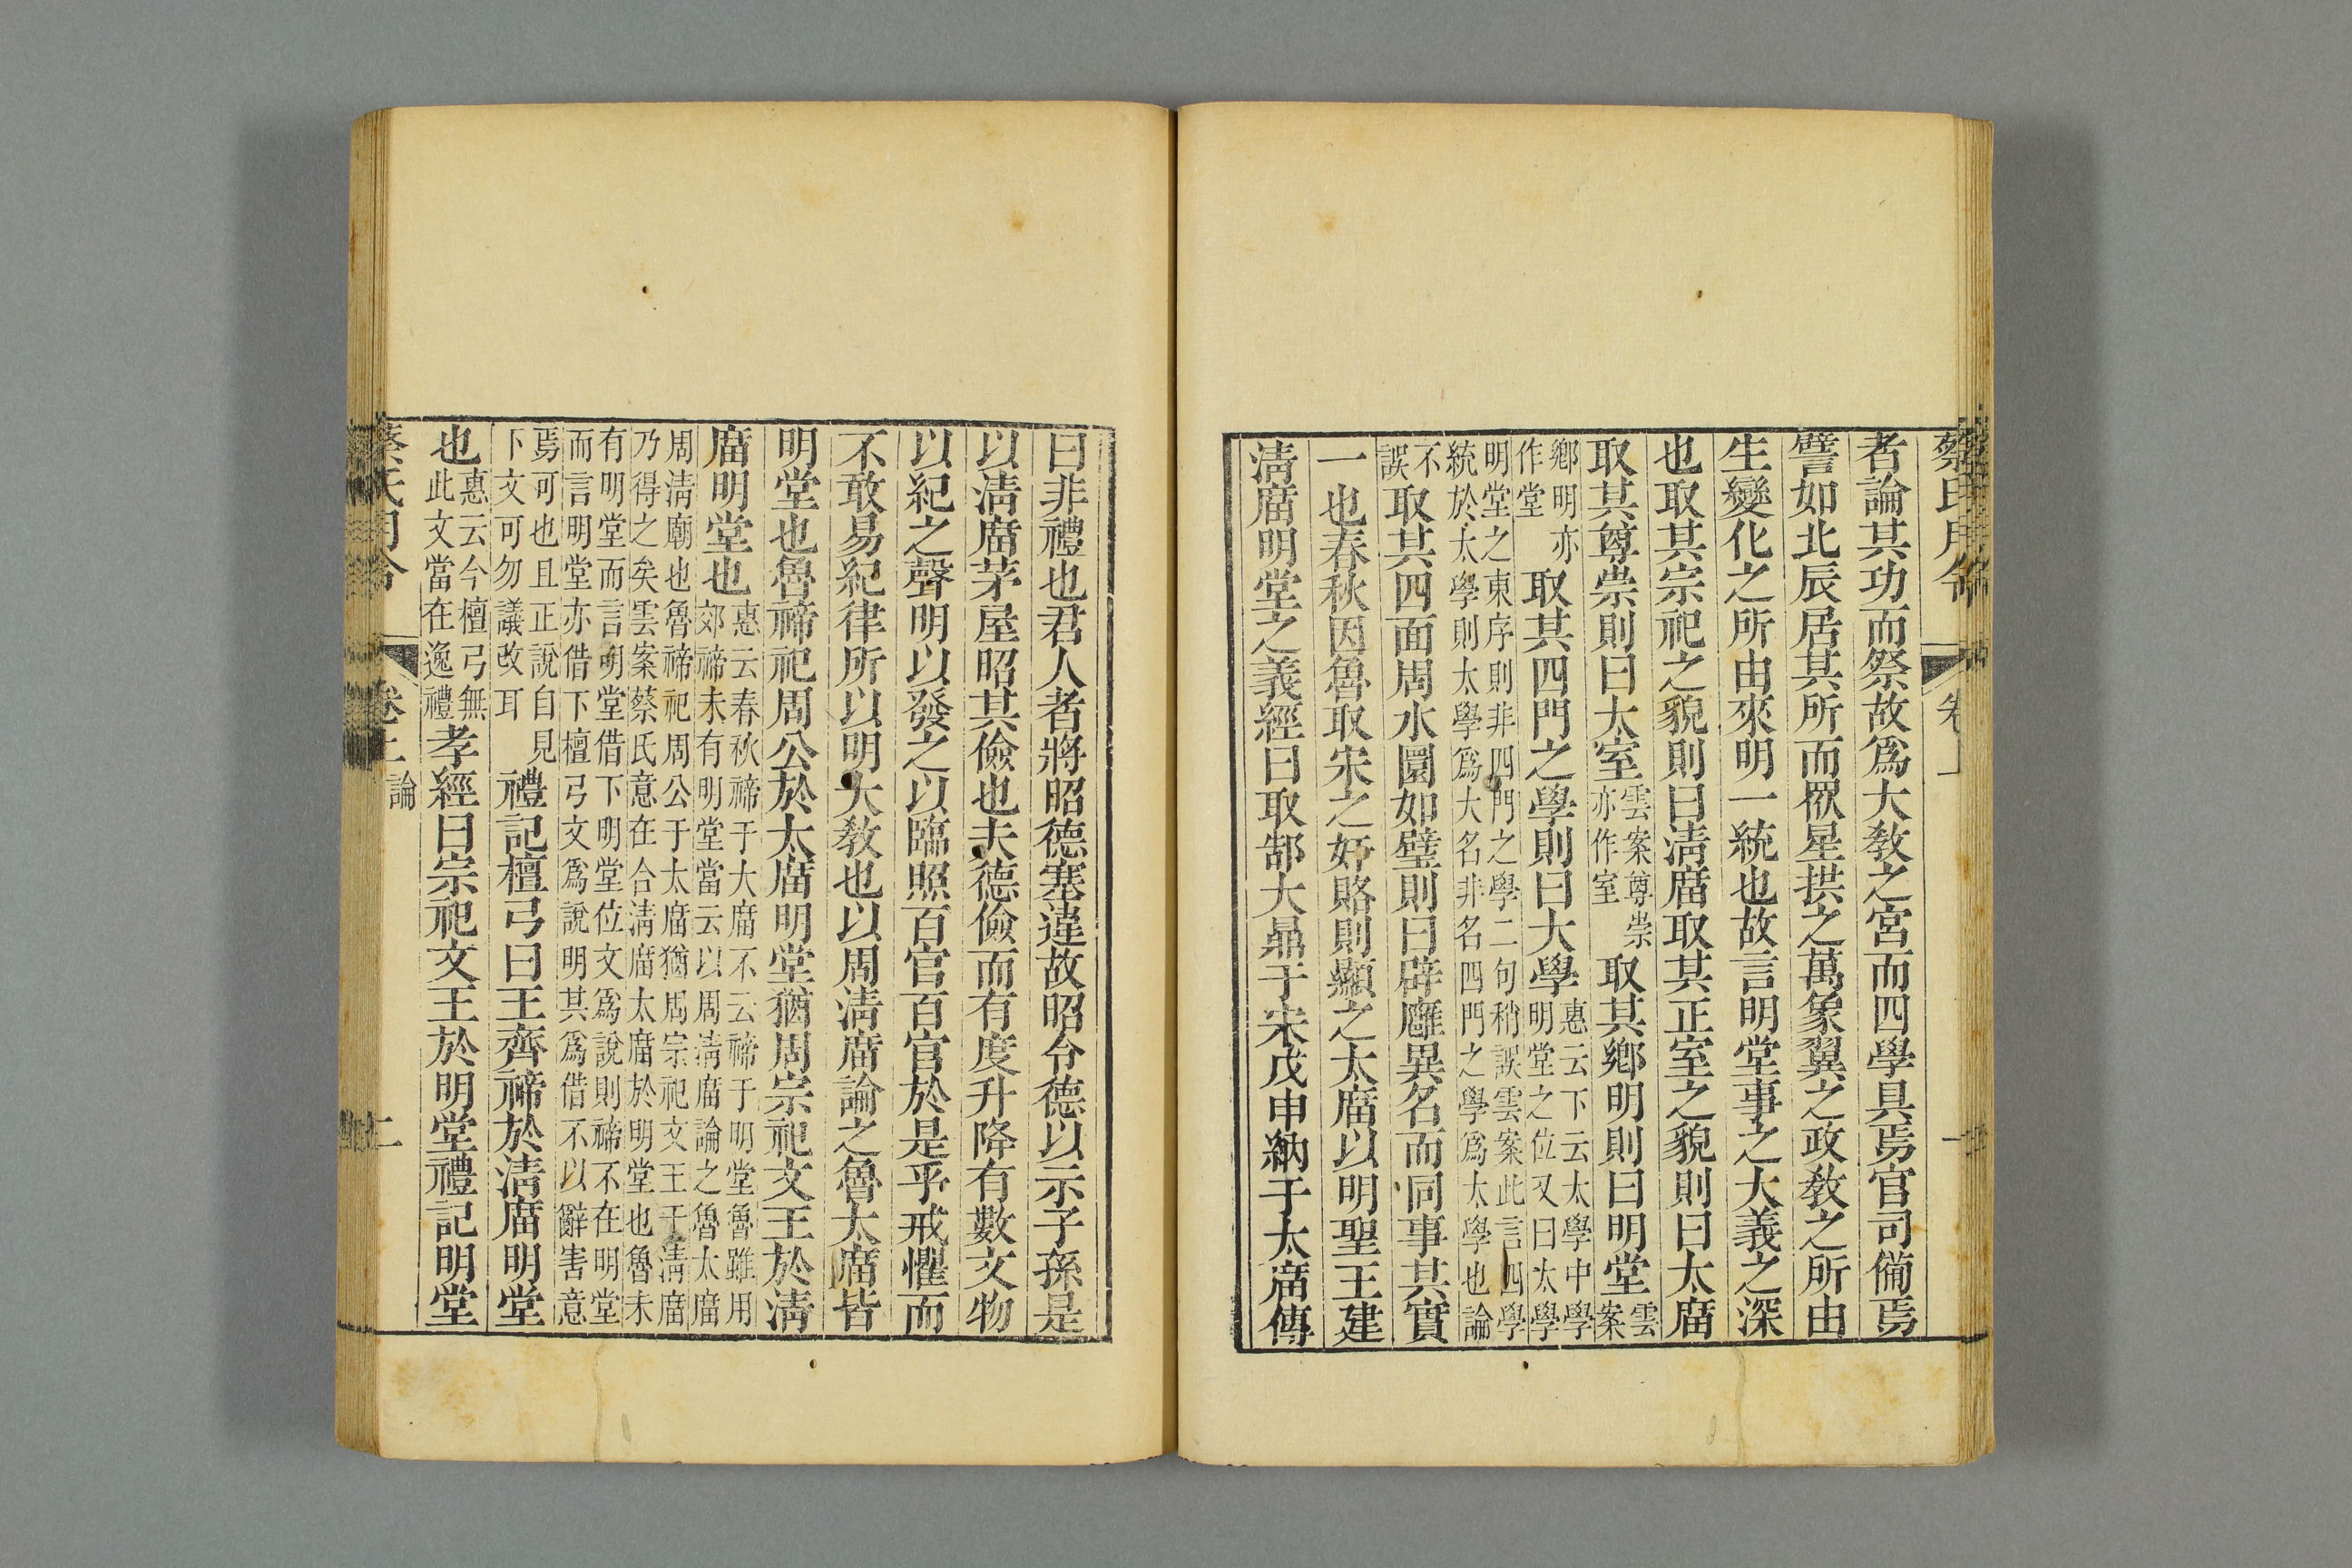 蔡氏月令 卷上
者論其功而祭故爲大敎之宮而四學具焉官司備焉
譬如北辰居其所而眾星拱之萬象翼之政敎之所由
生變化之所由來明一統也故言明堂事之大義之深
也取其宗祀之貌則曰淸廟取其正室之貌則曰太廟
取其尊崇則曰太室雲案尊崇亦作室取其鄉明則曰明堂雲案
鄉明亦作堂取其四門之學則曰大學惠云下云太學中學明堂之位又曰太學
明堂之東序則非四門之學二句稍誤雲案此言四學統於太學則太學爲大名非名四門之學爲太學也論
不誤取其四面周水圜如璧則曰辟廱異名而同事其實
一也春秋因魯取宋之姧賂則顯之太廟以明聖王建
淸廟明堂之義經曰取郜大鼎于宋戊申納于太廟傳
曰非禮也君人者將昭德塞違故昭令德以示子孫是
以淸廟茅屋昭其儉也夫德儉而有度升降有數文物
以紀之聲明以發之以臨照百官百官於是乎戒懼而
不敢易紀律所以明大敎也以周淸廟論之魯太廟皆
明堂也魯禘祀周公於太廟明堂猶周宗祀文王於淸
廟明堂也惠云春秋禘于大廟不云禘于明堂魯雖用郊禘未有明堂當云以周淸廟論之魯太廟
周淸廟也魯禘祀周公于太廟猶周宗祀文王于淸廟乃得之矣雲案蔡氏意在合淸廟太廟於明堂也魯未
有明堂而言明堂借下明堂位文爲說則禘不在明堂而言明堂亦借下檀弓文爲說明其爲借不以辭害意
焉可也且正說自見下文可勿議改耳禮記檀弓曰王齊禘於淸廟明堂
也惠云今檀弓無此文當在逸禮孝經曰宗祀文王於明堂禮記明堂
蔡氏月令 卷上 論 二